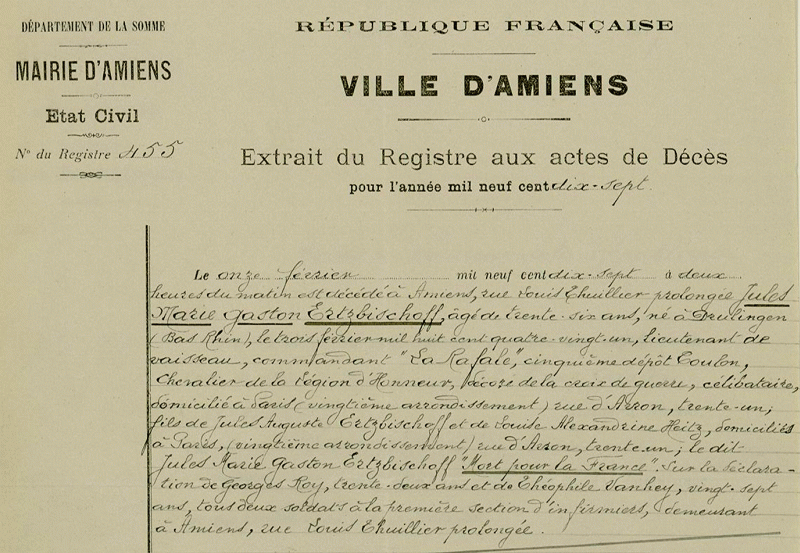 DÉPARTEMENT DE LA SOMME
MAIRIE D'AMIENS
Etat Civil
N° du Registre 455
RÉPUBLIQUE FRANÇAISE
VILLE D'AMIENS
Extrait du Registre aux actes de Décès
pour l'année mil neuf cent dix-sept
Le onze février mil neuf cent dix-sept à deux
heures du matin est décédé à Amiens, rue Louis Thuillier prolongée Jules
Marie Gaston Ertzbischoff, âgé de trente-six ans, né à Drulingen
(Bas Rhin), le trois février mil huit cent quatre-vingt-un, lieutenant de
vaisseau, commandant "La Rafale", cinquième dépôt Toulon,
Chevalier de la Légion d'Honneur, décoré de la croix de guerre, célibataire,
domicilié à Paris (vingtième arrondissement) rue d'Avron, trente-un;
fils de Jules Auguste Ertzbischoff et de Louise Alexandrine Heitz, domiciliés
à Paris, (vingtième arrondissement) rue d'Avron, trente un; le dit
Jules Marie Gaston Ertzbischoff "Mort pour la France". Sur la déclara-
tion de Georges Roy, trente-deux ans et de Théophile Vanhey, vingt-sept
ans, tous deux soldats à la première section d'infirmiers, demeurant
à Amiens, rue Louis Thuillier prolongée.